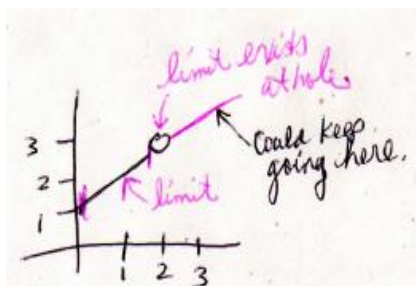 limit exists
at hole
3
Could keep
going here.
2
limit
1
1 2 3